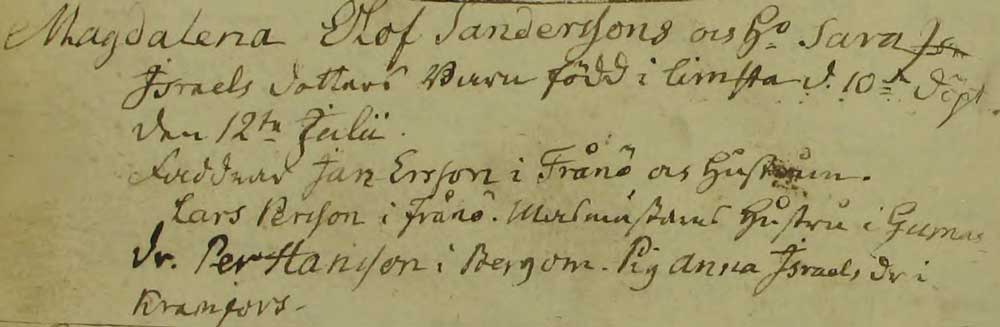 Magdalena Olof Sanderssons os Ho Sara
Israels dotters Barn född i limsta d. 10de döpt
den 12te Julii.
Faddrar Jan Ersson i Frånö os Hustrun.
Lars Persson i frånö. Masmästarns Hustru i Gumås
dr. Per Hansson i Bergom. Pig Anna Israels dr i
Kramfors.